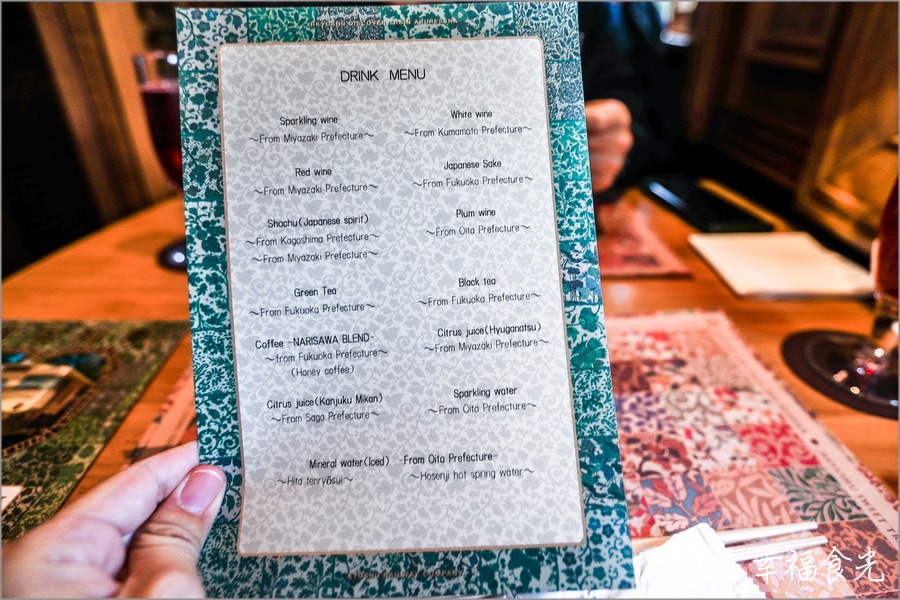 DRINK MENU
Sparkling wine
～From Miyazaki Prefecture～
White wine
～From Kumamoto Prefecture～
Red wine
～From Miyazaki Prefecture～
Japanese Sake
～From Fukuoka Prefecture～
Shochu(Japanese spirit)
～From Kagoshima Prefecture～
～From Miyazaki Prefecture～
Plum wine
～From Oita Prefecture～
Green Tea
～From Fukuoka Prefecture～
Black tea
～From Fukuoka Prefecture～
Coffee -NARISAWA BLEND-
～from Fukuoka Prefecture～
(Honey coffee)
Citrus juice(Hyuganatsu)
～From Miyazaki Prefecture～
Citrus juice(Kanjuku Mikan)
～From Saga Prefecture～
Sparkling water
～From Oita Prefecture～
Mineral water(Iced) -From Oita Prefecture-
～Hita tenryōsui～ ～Hosenji hot spring water～
KYUSHU RAILWAY COMPANY
幸福食光